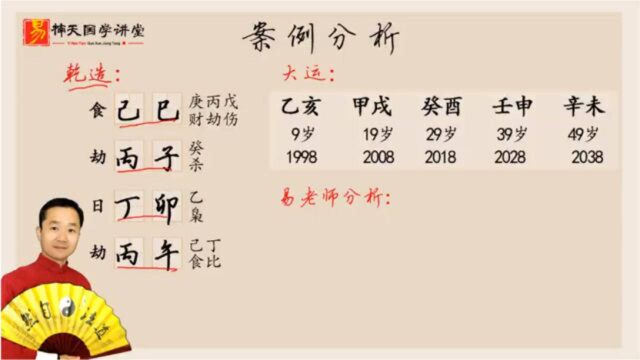 易
梻天国学讲堂
案例分析
乾造：
食 己 巳 庚丙戊
财劫伤
劫 丙 子 癸
杀
日 丁 卯 乙
枭
劫 丙 午 己丁
食比
大运：
乙亥 甲戌 癸酉 壬申 辛未
9岁 19岁 29岁 39岁 49岁
1998 2008 2018 2028 2038
易老师分析：